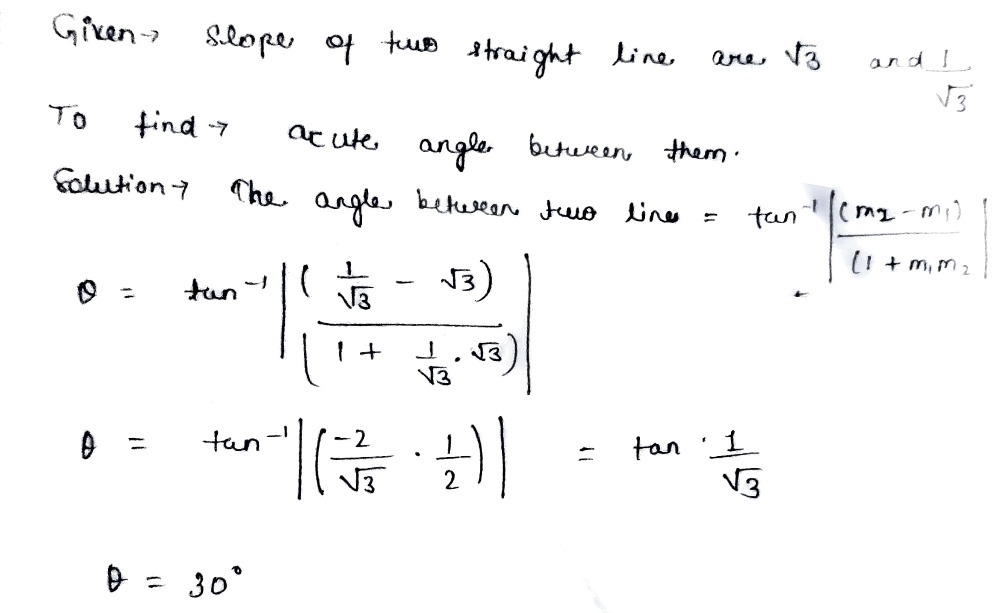 Given → Slope of two straight line are √3 and 1/√3
To find → acute angle between them.
Solution → The angle between two line = tan⁻¹ |(m2 - m1) / (1 + m1 m2|
θ = tan⁻¹ |(1/√3 - √3) / (1 + 1/√3 . √3)|
θ = tan⁻¹ |(-2/√3 . 1/2)| = tan · 1/√3
θ = 30°